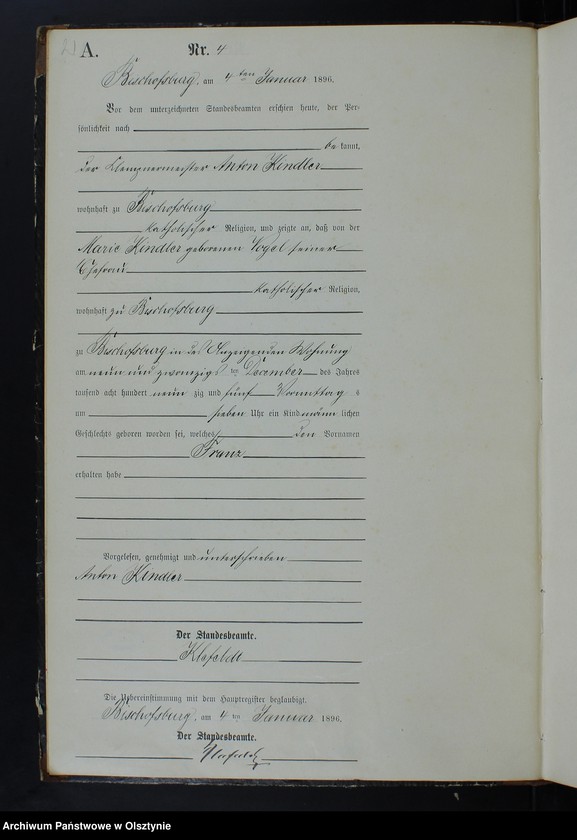 A.
Nr. 4
Bischofsburg, am 4 ten Januar 1896.
Vor dem unterzeichneten Standesbeamten erschien heute, der Per-
sönlichkeit nach
be kannt,
der Klempnermeister Anton Kindler
wohnhaft zu Bischofsburg
katholischer Religion, und zeigte an, daß von der
Marie Kindler geborenen Vogel seiner
Ehefrau
katholischer Religion,
wohnhaft zu Bischofsburg
zu Bischofsburg in des Anzeigenden Wohnung
am neun und zwanzigsten December des Jahres
tausend acht hundert neun zig und fünf Vormittag s
um sieben Uhr ein Kind männ lichen
Geschlechts geboren worden sei, welches den Vornamen
Franz
erhalten habe
Vorgelesen, genehmigt und unterschrieben
Anton Kindler
Der Standesbeamte.
Die Uebereinstimmung mit dem Hauptregister beglaubigt.
Bischofsburg, am 4 ten Januar 1896.
Der Standesbeamte.
Archiwum Państwowe w Olsztynie